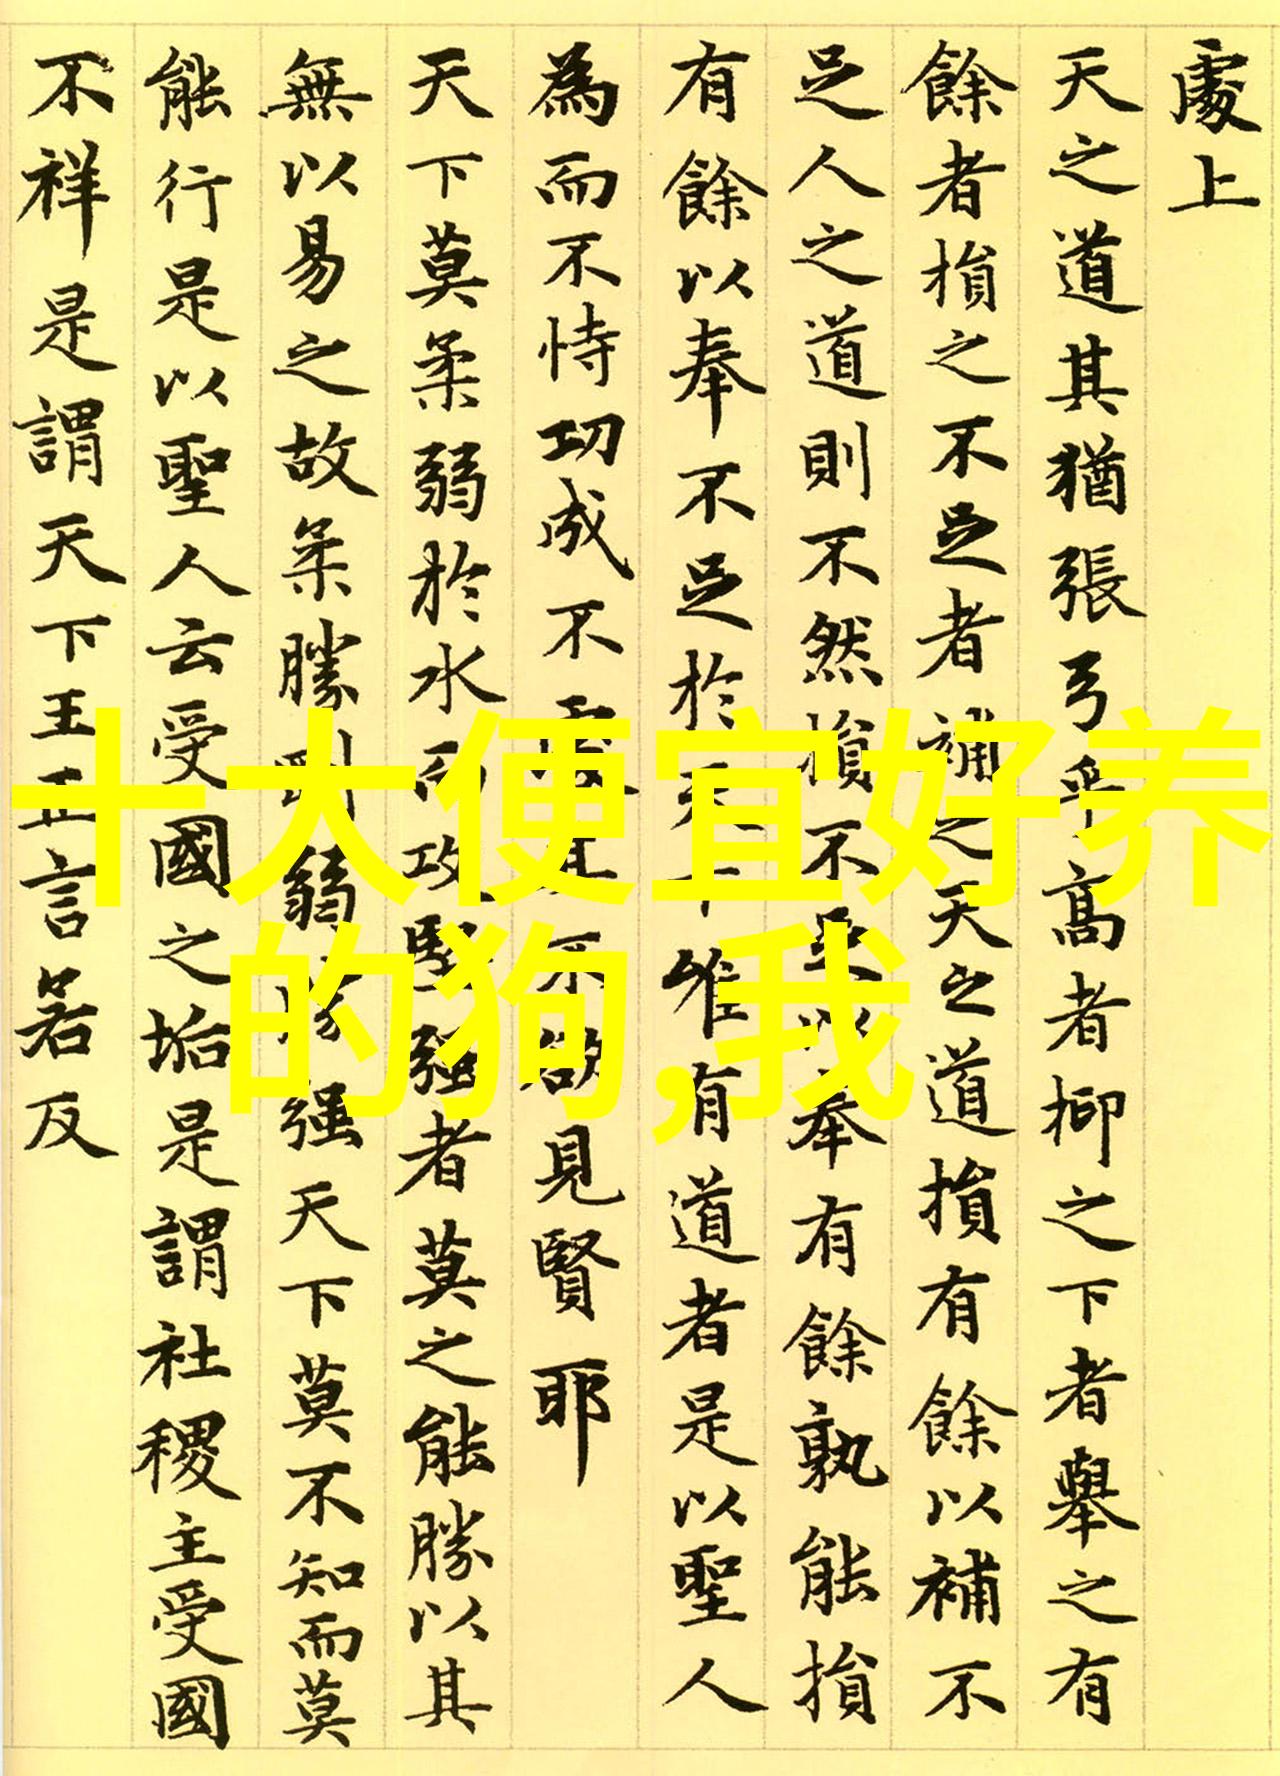 處上
天之道其猶張弓乎高者抑之下者舉之有
餘者損之不足者補之天之道損有餘以補不
足人之道則不然損不足以奉有餘孰能損
有餘以奉不足於天下唯有道者是以聖人
為而不恃功成不處其不欲見賢耶
天下莫柔弱於水而攻堅强者莫之能勝以其
無以易之故柔勝剛弱勝强天下莫不知而莫
能行是以聖人云受國之垢是謂社稷主受國
不祥是謂天下王正言若反
十大便宜好养
的狗,我